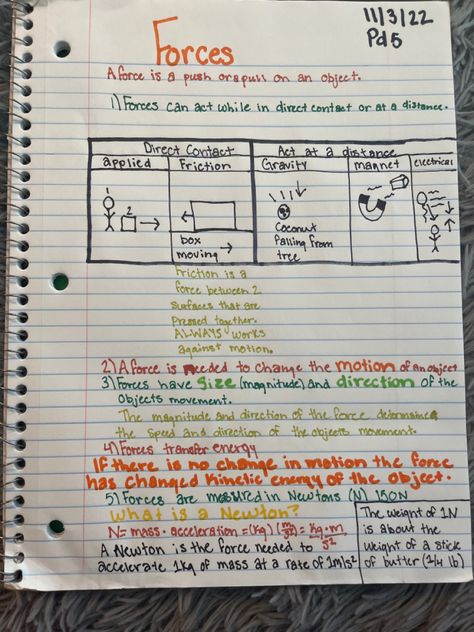 11/3/22
Pd5
Forces
A force is a push or a pull on an object.
1) Forces can act while in direct contact or at a distance.
Direct Contact
Act at a distance
applied
Friction
Gravity
magnet
electrical
2
box
moving
Coconut
falling from
tree
Friction is a
force between 2
surfaces that are
pressed together.
ALWAYS works
against motion.
2) A force is needed to change the motion of an object
3) Forces have size (magnitude) and direction of the
objects movement.
The magnitude and direction of the force determines
the speed and direction of the objects movement.
4) Forces transfer energy
If there is no change in motion the force
has changed kinetic energy of the object.
5) Forces are measured in Newtons (N) 150N
What is a Newton?
N = mass · acceleration = (kg) (m/s²) = kg·m/s²
A Newton is the force needed to
accelerate 1kg of mass at a rate of 1m/s²
The weight of 1N
is about the
weight of a stick
of butter (1/4 lb)